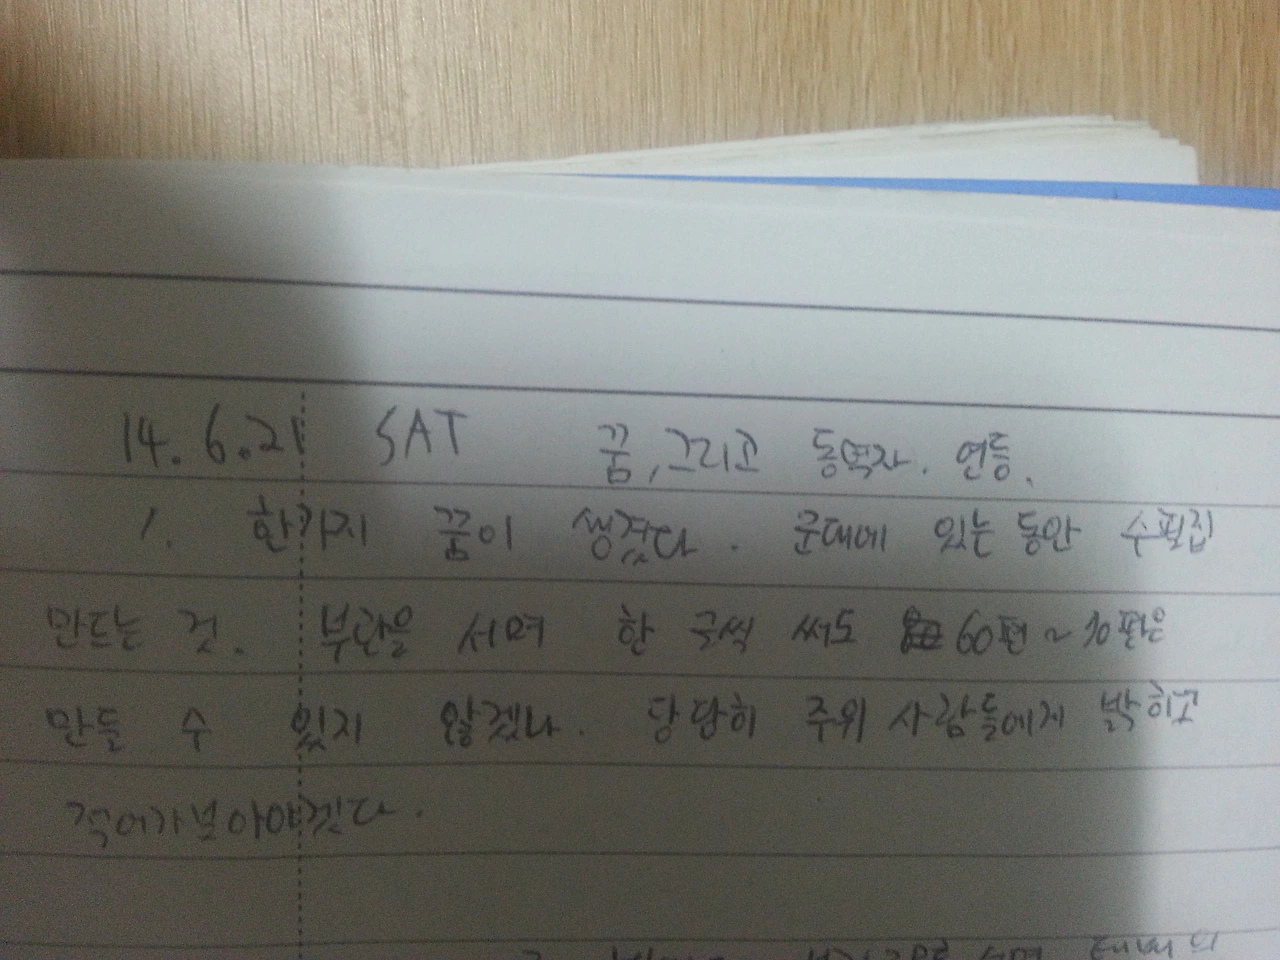 14. 6. 21 SAT 꿈, 그리고 동역자. 연등.
1. 한가지 꿈이 생겼다. 군대에 있는 동안 수필집
만드는 것. 서며 한 글씩 써도 60편 ~ 70편은
만들 수 있지 않겠나. 당당히 주위 사람들에게 밝히고
적어가보아야겠다.